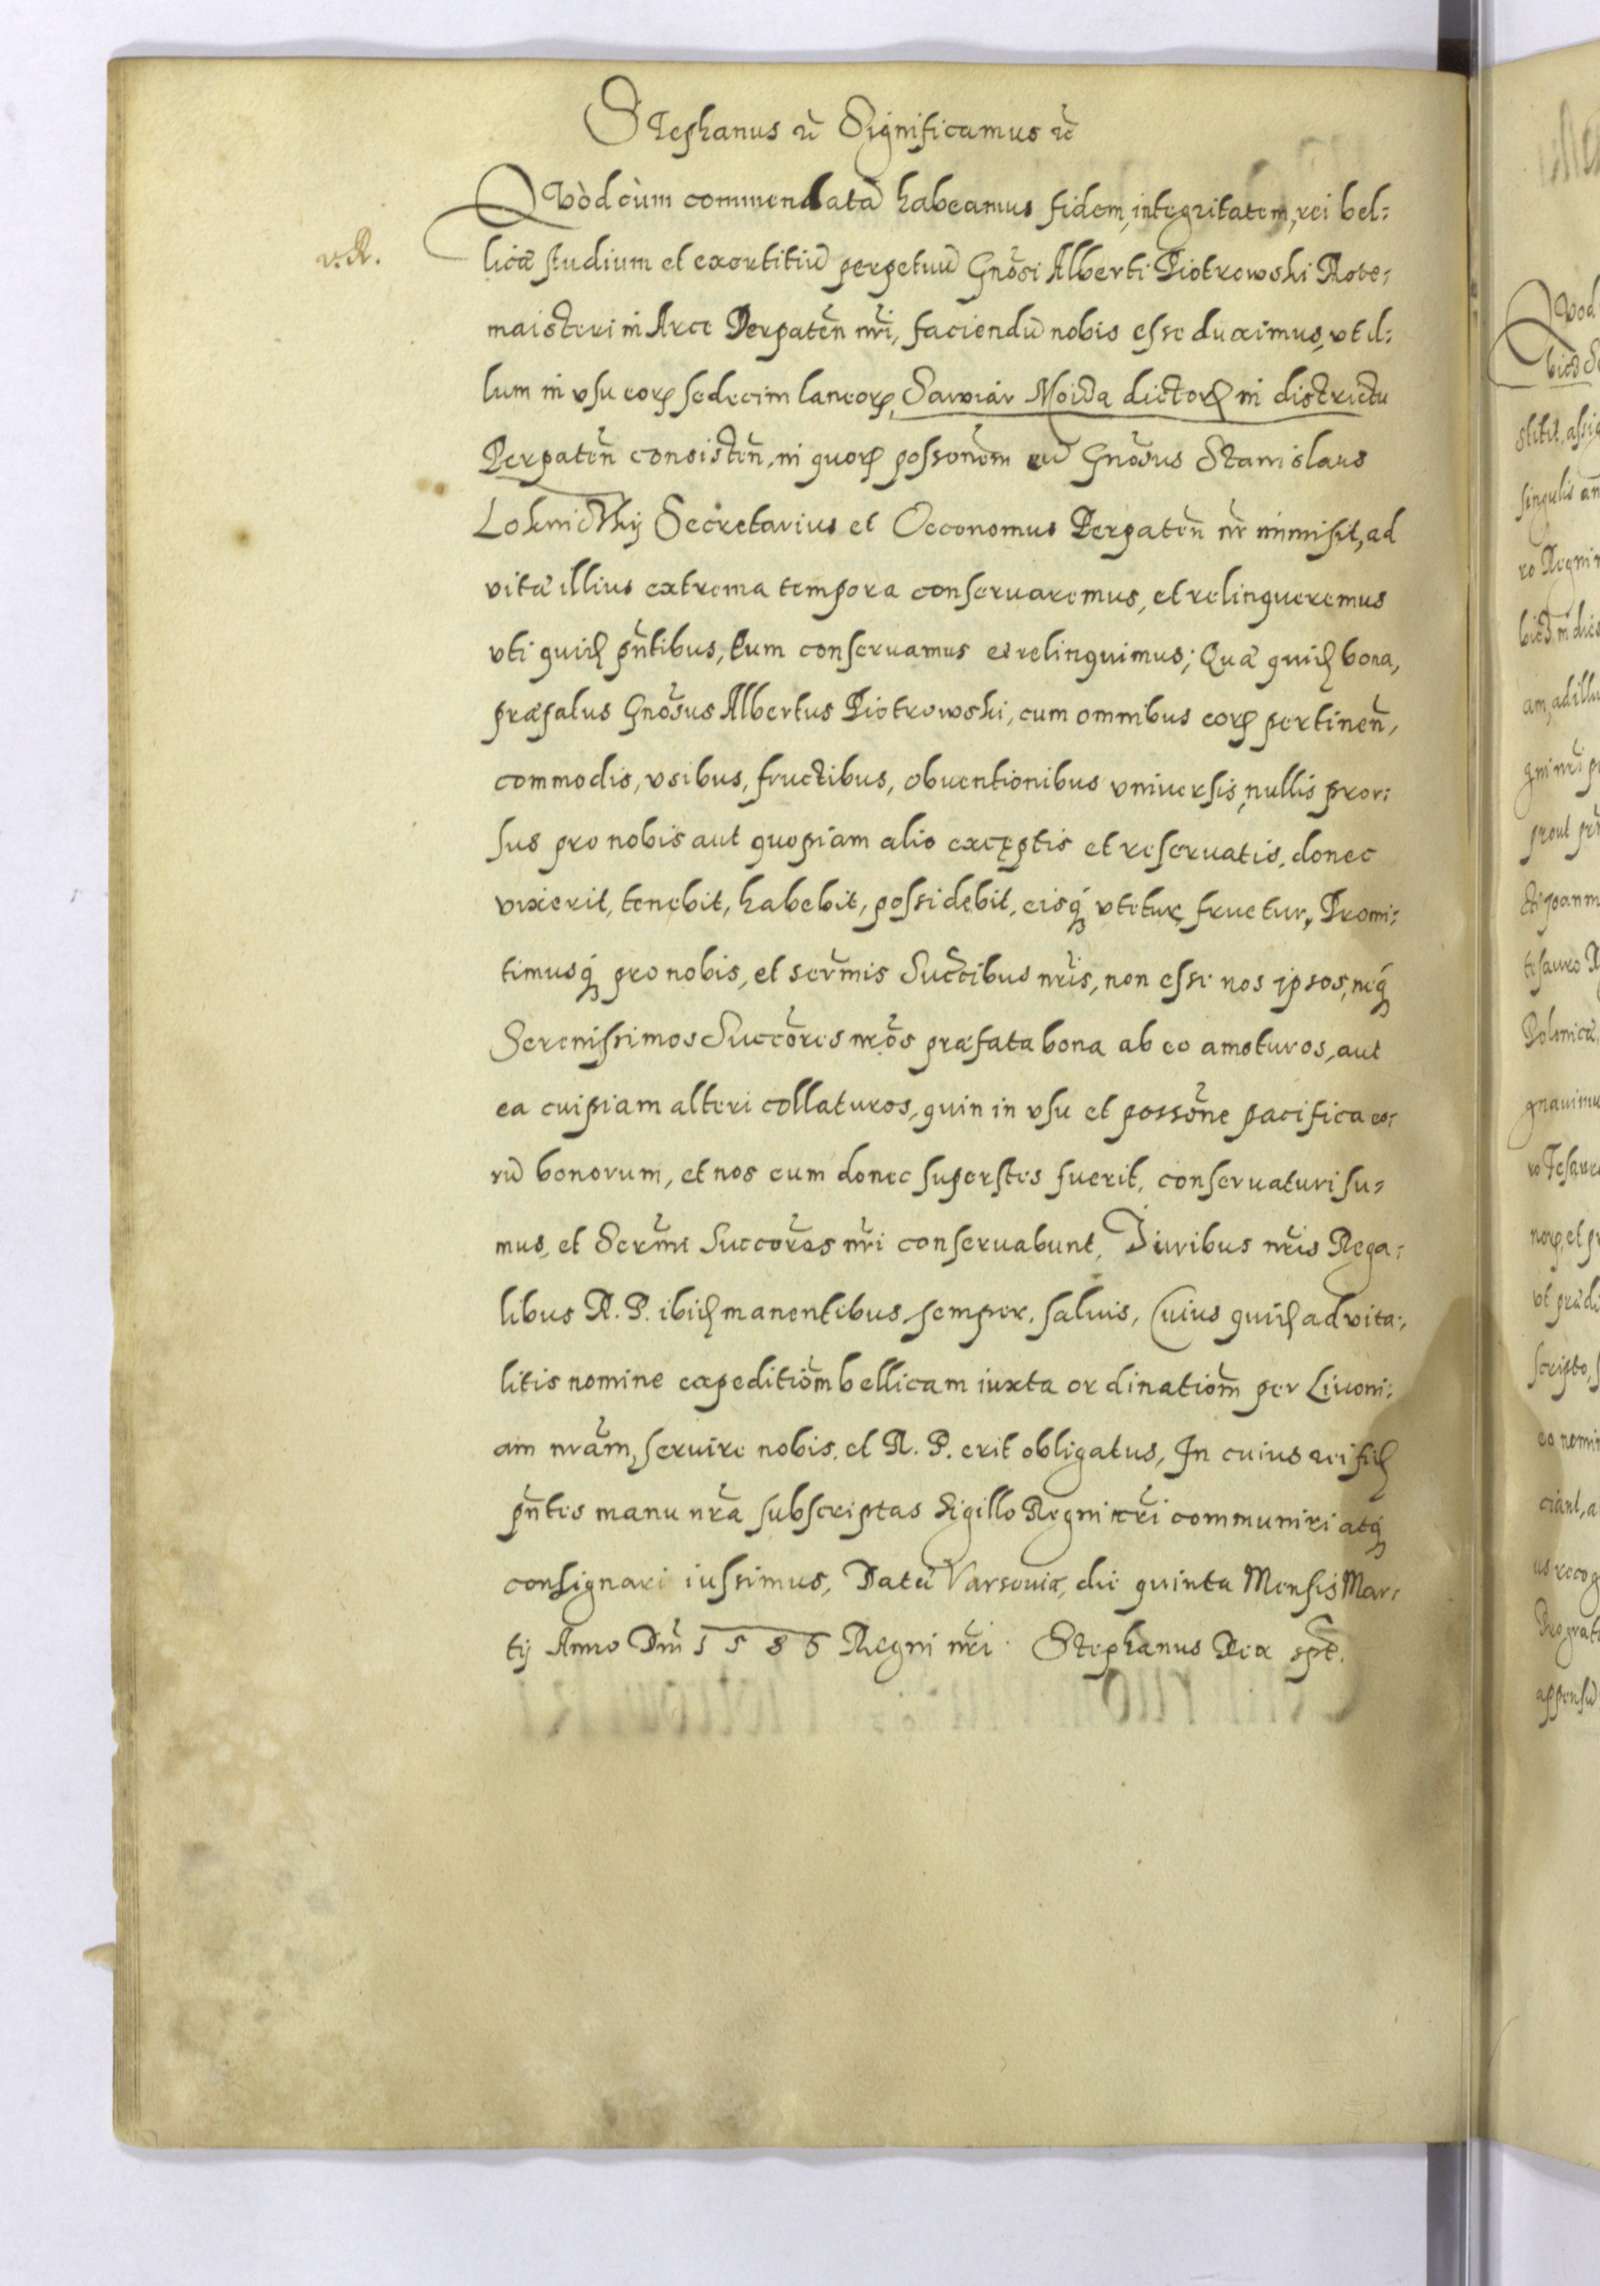 Stephanus etc Significamus etc
Quòd cùm commendatā habeamus fidem, integritatem, rei bel-
v. R.
licæ studium et exertitiū perpetuū Gnōsi Alberti Piotrowski Rote-
maisteri in Arce Derpateñ nr̄i, faciendū nobis esse duximus, vt il-
lum in vsu eorꝝ sedecim laneorꝝ, Sawiar Moiza dictorꝝ in districtu
Derpateñ consisteñ, in quorꝝ possonem eū Gnōsus Stanislaus
Secretarius et Oeconomus Derpateñ nr̄ immisit, ad
vitæ illius extrema tempora conseruaremus, et relinqueremus
vti quidē pñtibus, Eum conseruamus et relinquimus; Quæ quidē bona,
præfatus Gnōsus Albertus Piotrowski, cum omnibus eorꝝ pertineñ,
commodis, vsibus, fructibus, obuentionibus vniuersis, nullis pror-
sus pro nobis aut quopiam alio exceptis et reseruatis, donec
vixerit, tenebit, habebit, possidebit, eisq́ vtetur, fruetur, Promi-
timusq́ pro nobis, et serm̄is Succībus nr̄is, non esse nos ipsos, neq́
Serenissimos Succōres nr̄os præfata bona ab eo amoturos, aut
ea cuipiam alteri collaturos, quin in vsu et possōne pacifica eo-
rū bonorum, et nos eum donec superstes fuerit, conseruaturi su-
mus, et Serm̄i Succōres nr̄i conseruabunt, Iuribus nr̄is Rega-
libus R. P. ibidē manentibus, semper, saluis, Cuius quidē aduita-
litis nomine expeditiōm bellicam iuxta ordinatiōm per Liuoni-
am nr̄am, seruire nobis, et R. P. erit obligatus, In cuius rei fidē
pñtes manu nr̄a subscriptas Sigillo Regni nr̄i communiri atq́
consignari iussimus, Datū Varsouiæ, die quinta Mensis Mar-
tij Anno Dm̄ 1586 Regni nr̄i Stephanus Rex spt̄.